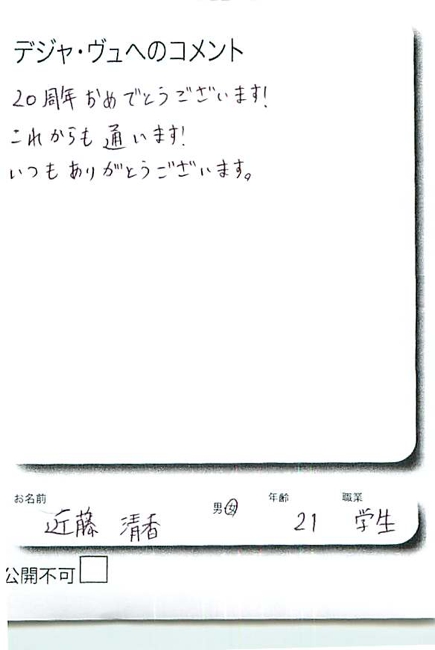 デジャ・ヴュへのコメント
20周年おめでとうございます!
これからも通います!
いつもありがとうございます。
お名前 男女 年齢 職業
近藤 清香 21 学生
公開不可